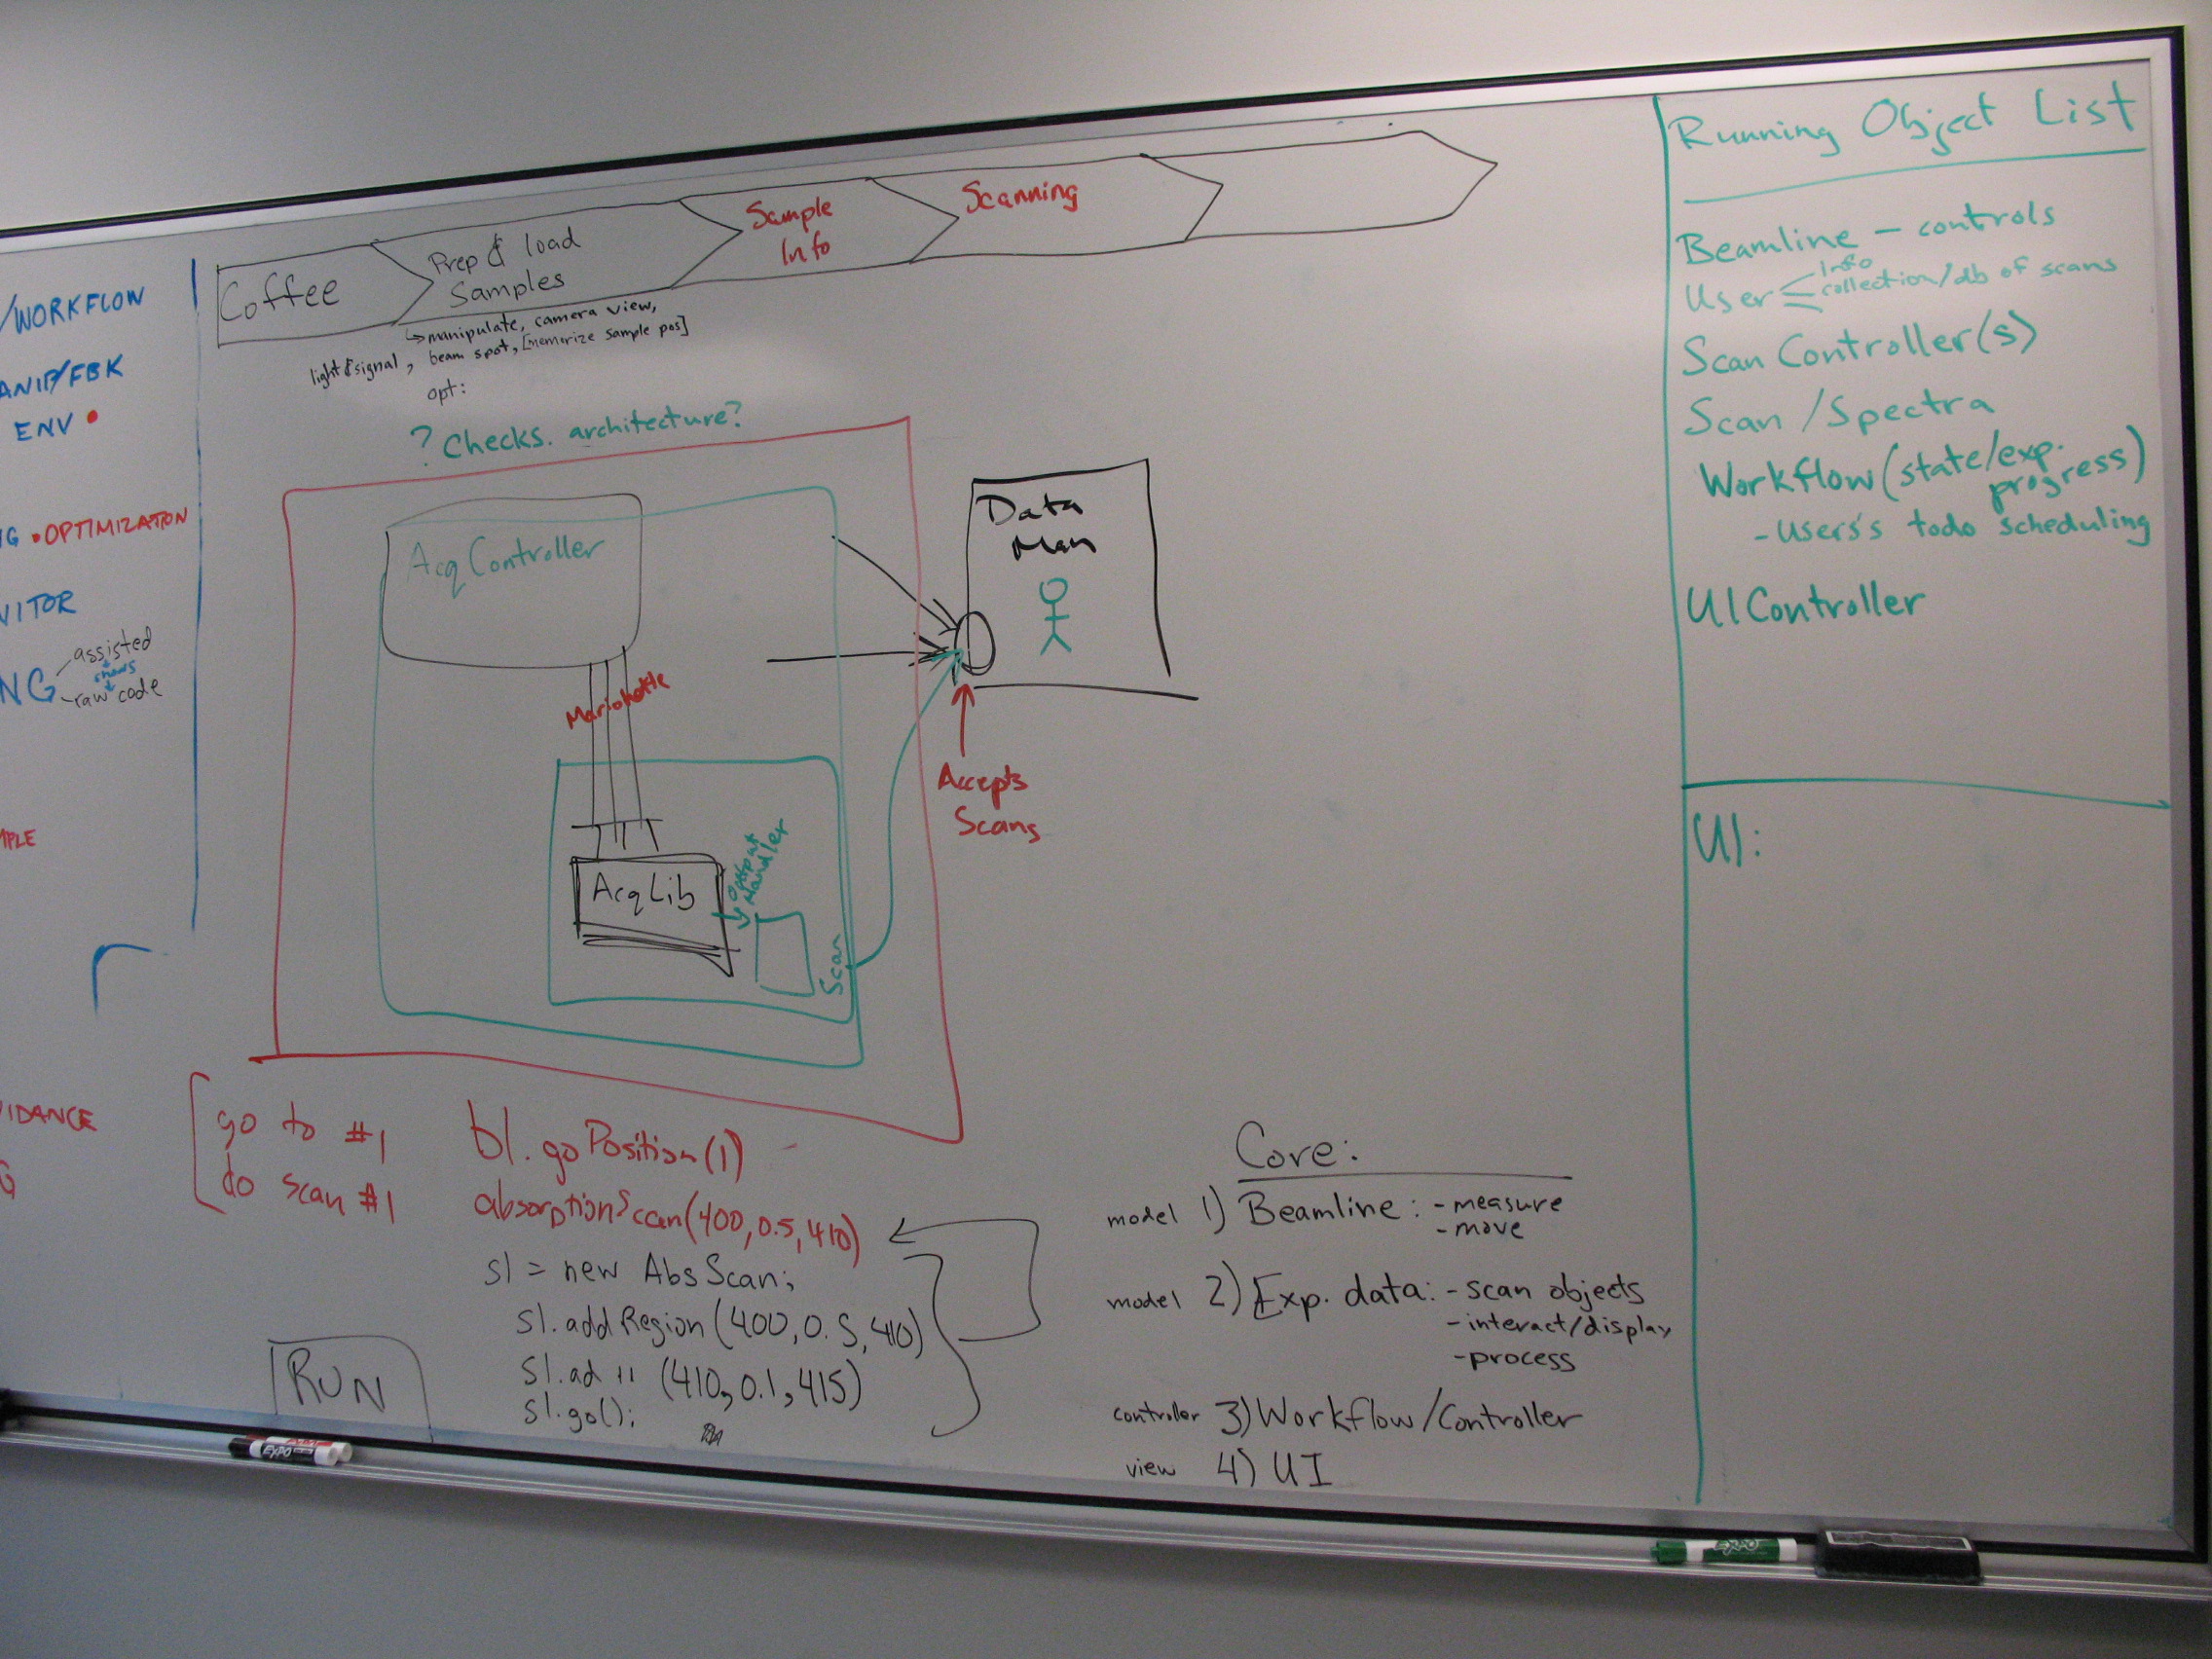 /WORKFLOW
ANIP/FBK
ENV
G • OPTIMIZATION
assisted
shows
raw code
NG
MPLE
IDANCE
G
Coffee
Prep & load
Samples
Sample
Info
Scanning
manipulate, camera view,
light & signal, beam spot, [memorize sample pos]
opt:
? Checks. architecture?
Acq Controller
AcqLib
Output
Handler
Scan
Data
Man
Accepts
Scans
go to #1
do scan #1
bl.goPosition(1)
absorptionScan(400,0.5,410)
s1 = new AbsScan;
s1.addRegion(400,0.5,410)
s1.ad " (410,0.1,415)
s1.go();
RUN
EXPO
Core:
model 1) Beamline: - measure
- move
model 2) Exp. data: - scan objects
- interact/display
- process
controller 3) Workflow/Controller
view 4) UI
Running Object List
Beamline - controls
User
Info
collection/db of scans
Scan Controller(s)
Scan/Spectra
Workflow (state/exp.
progress)
- Users's todo scheduling
UI Controller
UI:
EXPO